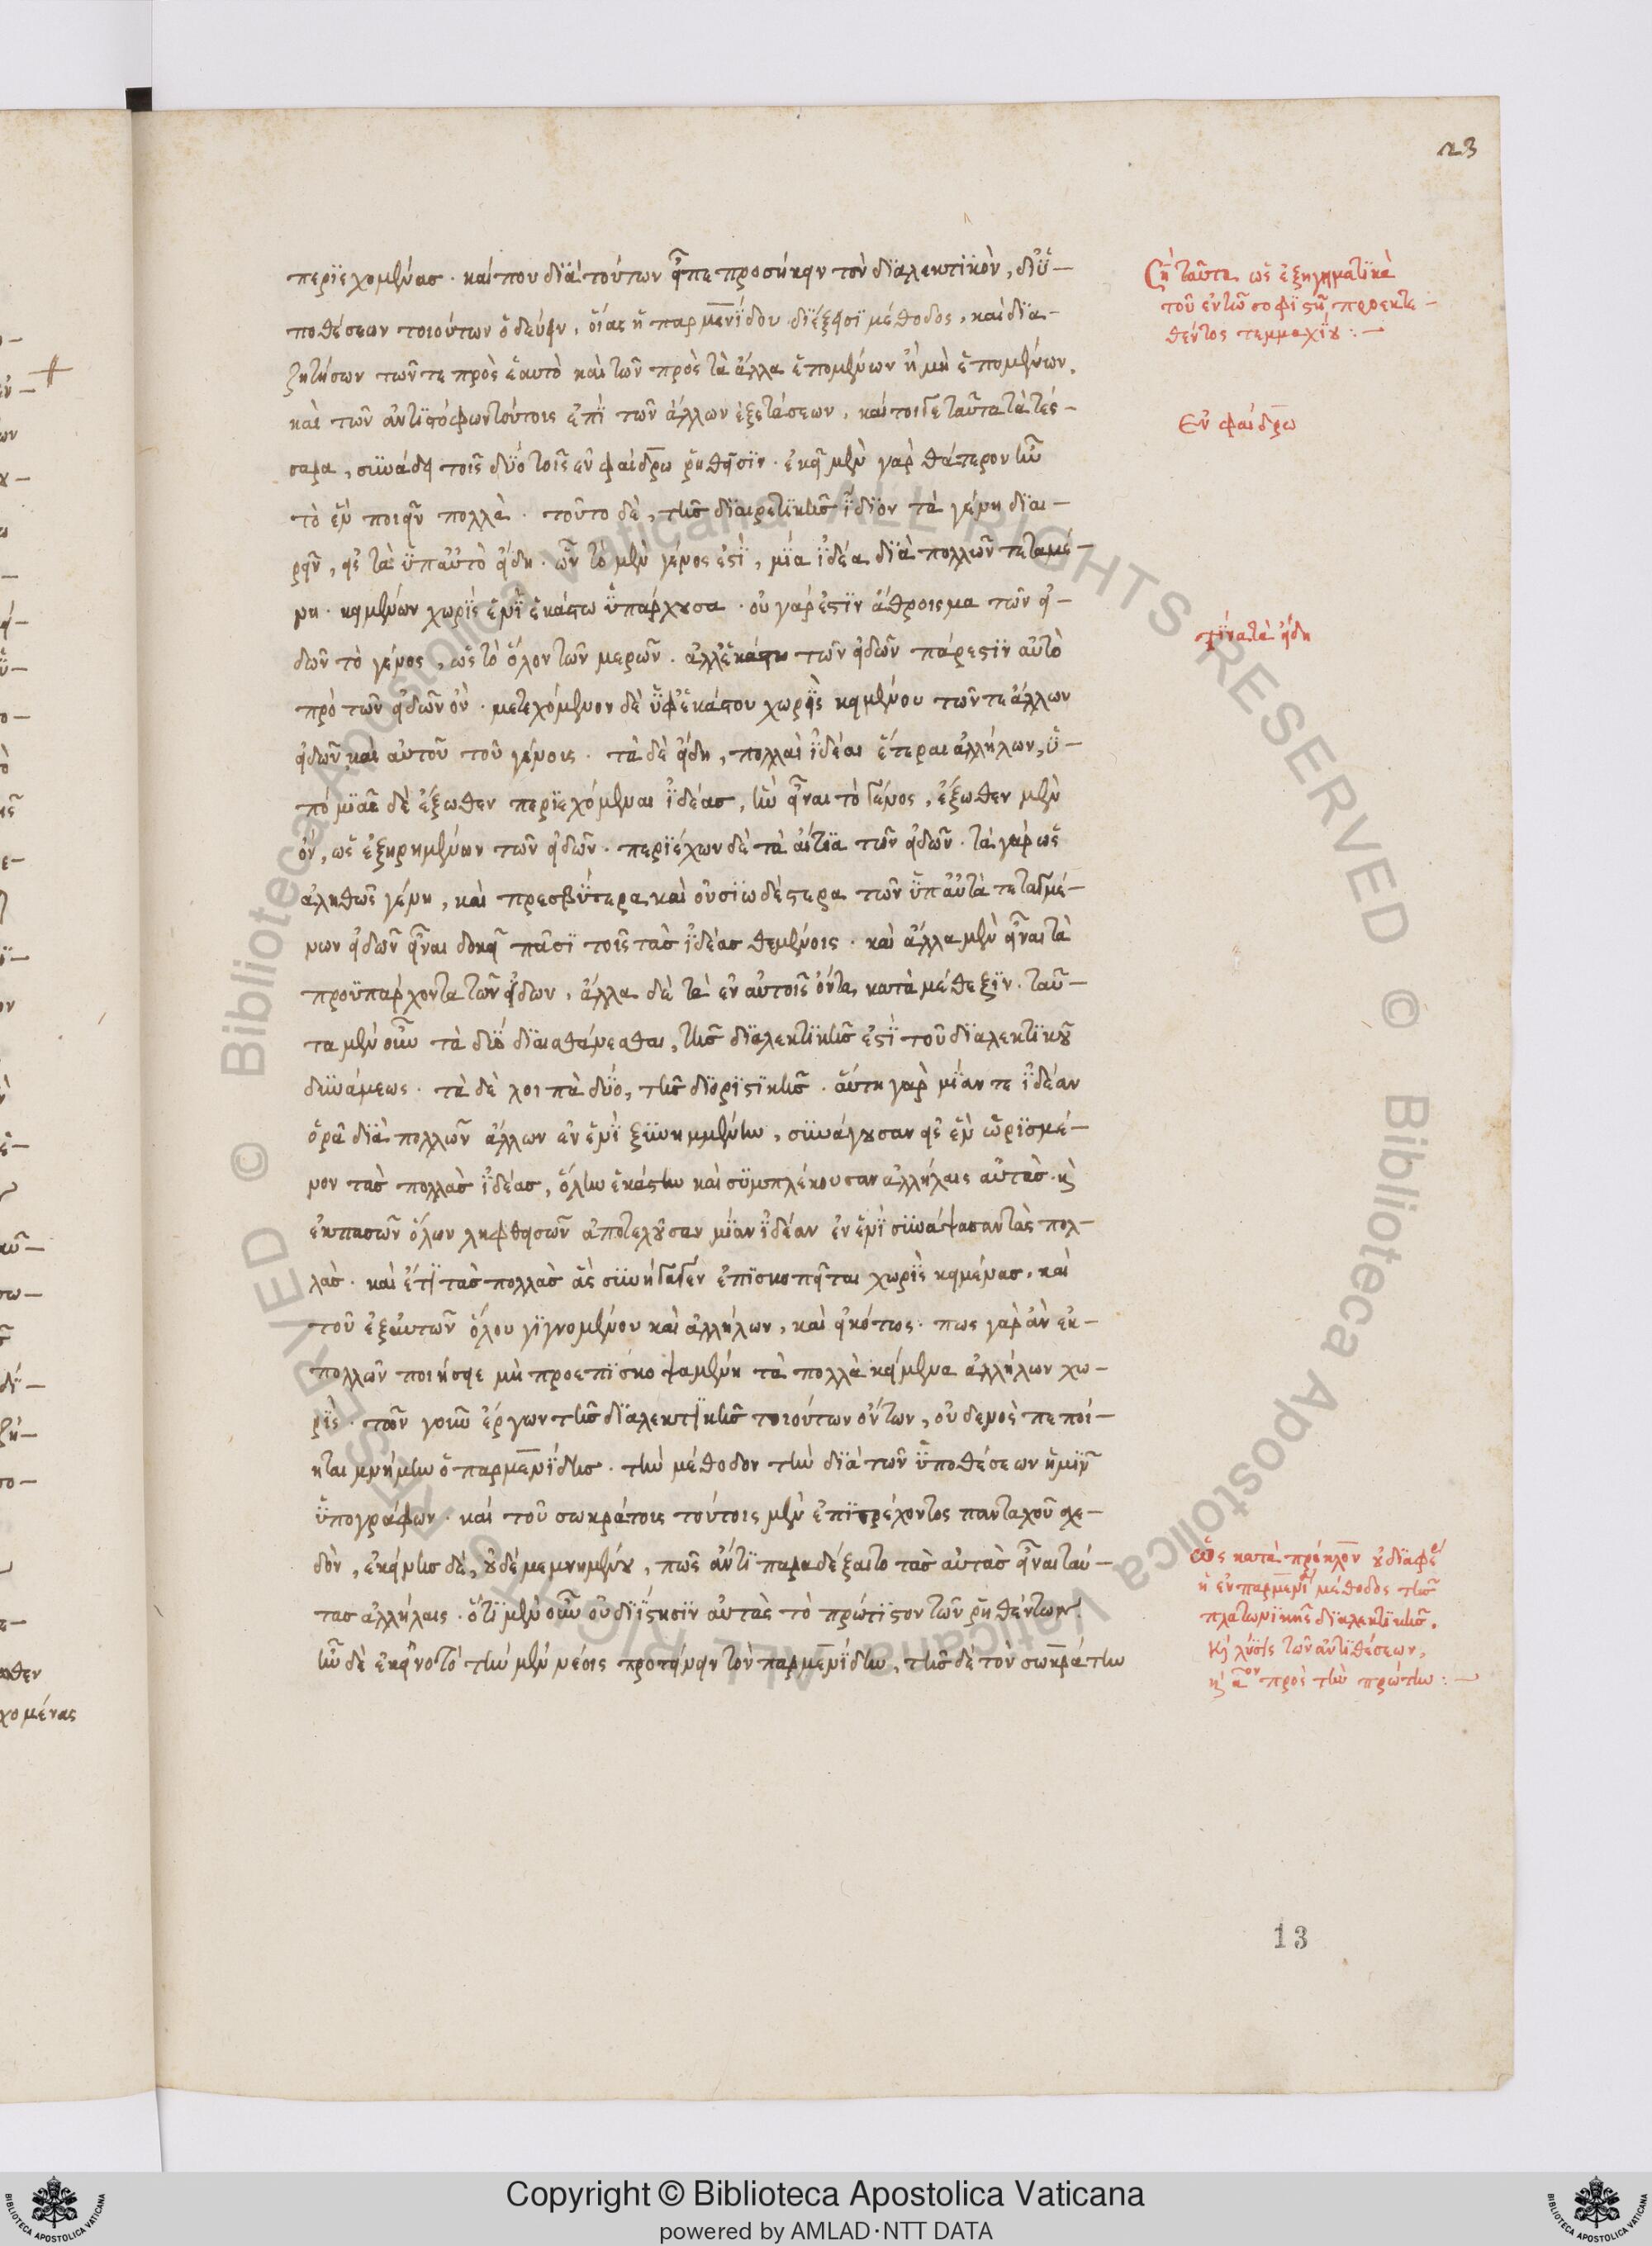 23
περιεχομένας. καί που διὰ τούτων εἶπε προσήκειν τὸν διαλεκτικὸν, δι' ὑ-
ποθέσεων τοιούτων ὁδεύειν, οἵας ἡ παρμενίδου διέξεισι μέθοδος, καὶ δια-
ζητήσεων τῶν τε πρὸς ἑαυτὸ καὶ τῶν πρὸς τὰ ἄλλα ἑπομένων ἢ μὴ ἑπομένων.
καὶ τῶν ἀντιστρόφων τούτοις ἐπὶ τῶν ἄλλων ἐξετάσεων, καίτοι γε ταῦτα τὰ τέσ-
σαρα, συνάδει τοῖς δυὸ τοῖς ἐν φαίδρω ῥηθεῖσιν. ἐκεῖ μὲν γὰρ θάτερον ἦν
τὸ ἓν ποιεῖν πολλὰ. τοῦτο δὲ, τῆς διαιρετικῆς ἴδιον τὰ γένη διαι-
ρεῖν, εἰς τὰ ὑπ' αὐτὸ εἴδη. ὧν τὸ μὲν γένος ἐστὶ, μία ἰδέα διὰ πολλῶν τεταμέ-
νη. κειμένων χωρὶς ἑνὶ ἑκάστω ὑπάρχουσα. οὐ γάρ ἐστιν ἄθροισμα τῶν εἰ-
δῶν τὸ γένος, ὡς τὸ ὅλον τῶν μερῶν. ἀλλ' ἑκάστω τῶν εἰδῶν πάρεστιν αὐτὸ
πρὸ τῶν εἰδῶν ὂν. μετεχόμενον δὲ ὑφ' ἑκάστου χωρὶς κειμένου τῶν τε ἄλλων
εἰδῶν καὶ αὐτοῦ τοῦ γένους. τὰ δὲ εἴδη, πολλαὶ ἰδέαι ἕτεραι ἀλλήλων, ὑ-
πὸ μιᾶς δὲ ἔξωθεν περιεχόμεναι ἰδέας, ἣν εἶναι τὸ γένος, ἔξωθεν μὲν
ὂν, ὡς ἐξηρημένων τῶν εἰδῶν. περιέχων δὲ τὰ αἴτια τῶν εἰδῶν. τὰ γὰρ ὡς
ἀληθῶς γένη, καὶ πρεσβύτερα καὶ οὐσιωδέστερα τῶν ὑπ' αὐτὰ τεταγμέ-
νων εἰδῶν εἶναι δοκεῖ πᾶσι τοῖς τὰς ἰδέας θεμένοις. καὶ ἄλλα μὲν εἶναι τὰ
προϋπάρχοντα τῶν εἰδων, ἄλλα δὲ τὰ ἐν αὐτοῖς ὄντα κατὰ μέθεξιν. ταῦ-
τα μὲν οὖν τὰ δυὸ διαισθάνεσθαι, τῆς διαλεκτικῆς ἐστὶ τοῦ διαλεκτικοῦ
δυνάμεως. τὰ δὲ λοιπὰ δυὸ, τῆς διοριστικῆς. αὕτη γὰρ μίαν τε ἰδέαν
ὁρᾶ διὰ πολλῶν ἄλλων ἐν ἑνὶ ξυνημμένην, συνάγουσαν εἰς ἓν ὡρισμέ-
νον τὰς πολλὰς ἰδέας, ὅλην ἑκάστην καὶ συμπλέκουσαν ἀλλήλαις αὐτὰς. καὶ
ἐκ πασῶν ὅλων ληφθεισῶν ἀποτελοῦσαν μίαν ἰδέαν ἐν ἑνὶ συνάψασαν τὰς πολ-
λὰς. καὶ ἔτι τὰς πολλὰς ἃς συνήγαγεν ἐπισκοπεῖται χωρὶς κειμένας, καὶ
τοῦ ἐξ αὐτῶν ὅλου γιγνομένου καὶ ἀλλήλων, καὶ εἰκότως. πως γὰρ ἂν ἐκ
πολλῶν ποιήσειε μὴ προεπισκοψαμένη τὰ πολλὰ κείμενα ἀλλήλων χω-
ρὶς. τῶν γοῦν ἔργων τῆς διαλεκτικῆς τοιούτων ὄντων, οὐδενὸς πεποί-
ηται μνήμην ὁ παρμενίδης. τὴν μέθοδον τὴν διὰ τῶν ὑποθέσεων ἡμῖν
ὑπογράφων. καὶ τοῦ σωκράτους τούτοις μὲν ἐπιτρέχοντος πανταχοῦ σχε-
δὸν, ἐκείνης δὲ, οὐδὲ μεμνημένου, πῶς ἄν τι παραδέξαιτο τὰς αὐτὰς εἶναι ταύ-
τας ἀλλήλαις. ὅτι μὲν οὖν οὐ διΐστησιν αὐτὰς τὸ πρώτιστον τῶν ῥηθέντων.
ἦν δὲ ἐκεῖνο τὸ τὴν μὲν νέοις προτείνειν τὸν παρμενίδην, τῆς δὲ τὸν σωκράτην
ση ταῦτα ὡς ἐξηγηματικὰ
τοῦ ἐν τῶ σοφιστῆ προεκτε-
θέντος τεμμαχίου:-
Ἐν φαίδρω
τίνα τὰ εἴδη
Ὡς κατὰ πρόκλον οὐ διαφέ
ἡ ἐν παρμενί μέθοδος τῆς
πλατωνικῆς διαλεκτικῆς.
καὶ λύσις τῶν ἀντιθέσεων,
καὶ αον πρὸς τὴν πρώτην:-
13
Copyright © Biblioteca Apostolica Vaticana
powered by AMLAD·NTT DATA